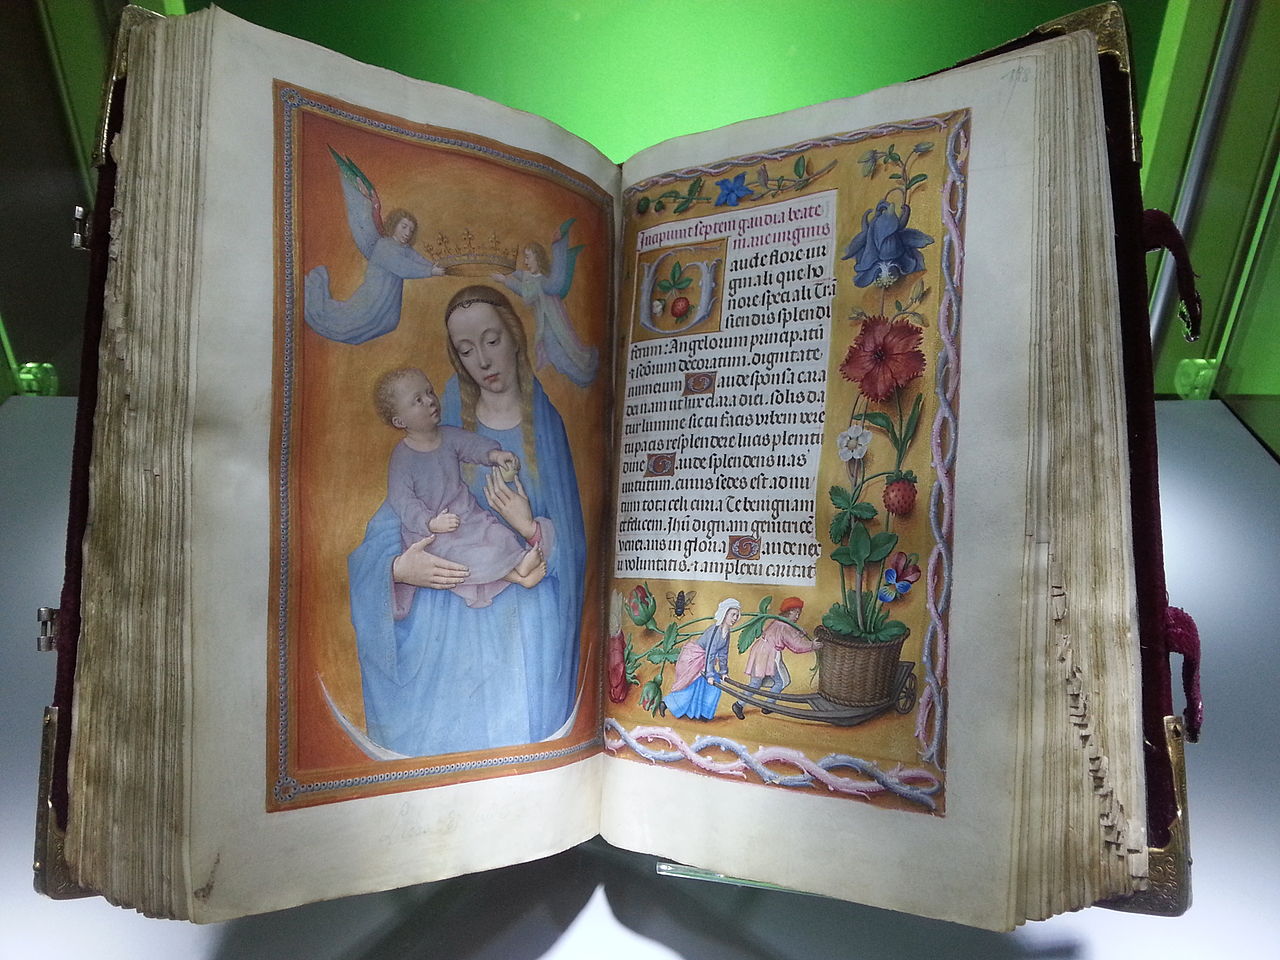 Incipiunt septem gaudia beate
marie virginis
Gaude flore vir
ginali que ho
nore speciali Trā
scendis splendi
ferum: Angelorum principatū
⁊ scōrum decoratum. dignitate
numerum Gaude sponsa cara
dei nam ut lux clara diei. solis da
tur lumine sic tu facis urbem vere
tu pacis resplendere lucis plenitu
dine Gaude splendens vas
virtutum. cuius sedes est ad nu
tum tota celi curia Te benignam
et felicem. Jhū dignam genitricē
venerans in gloria Gaude nex
u voluntatis. ⁊ amplexu caritat